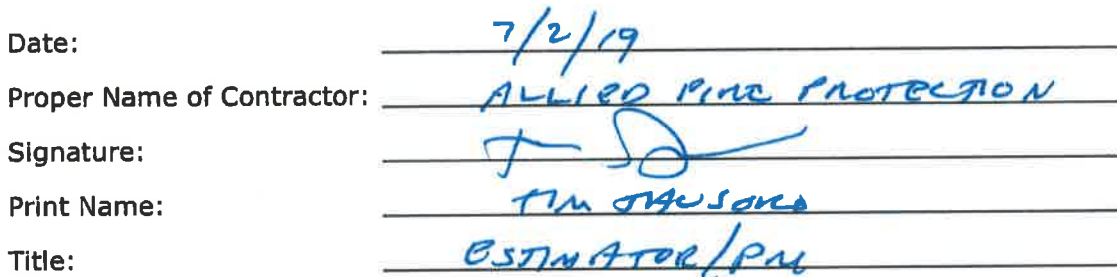 Date: 7/2/19
Proper Name of Contractor: ALLIED FIRE PROTECTION
Signature:
Print Name: TIM
Title: ESTIMATOR/PM